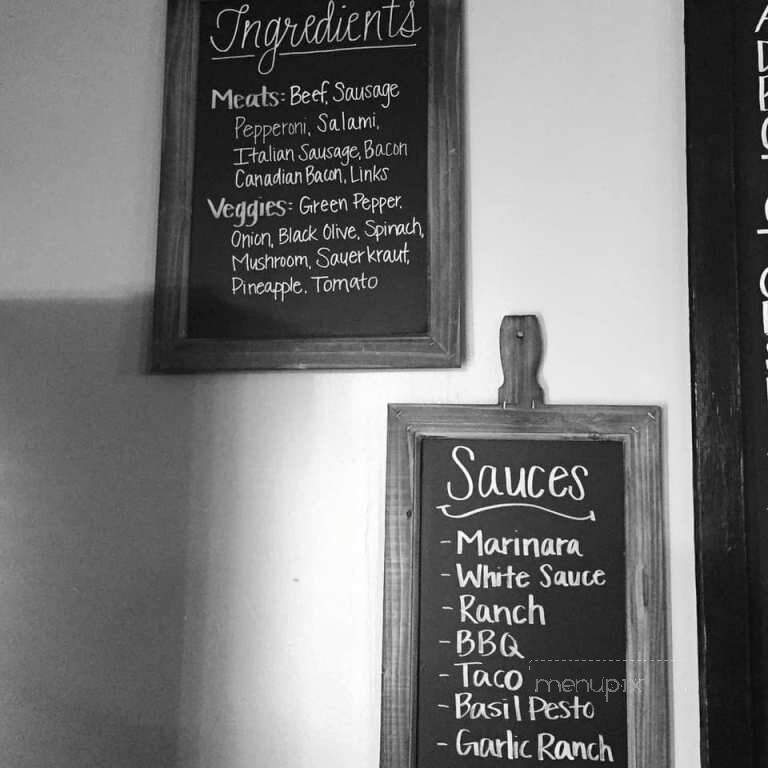 Ingredients
Meats: Beef, Sausage
Pepperoni, Salami,
Italian Sausage, Bacon
Canadian Bacon, Links
Veggies: Green Pepper,
Onion, Black Olive, Spinach,
Mushroom, Sauerkraut,
Pineapple, Tomato
Sauces
- Marinara
- White Sauce
- Ranch
- BBQ
- Taco
menupix
- Basil Pesto
- Garlic Ranch